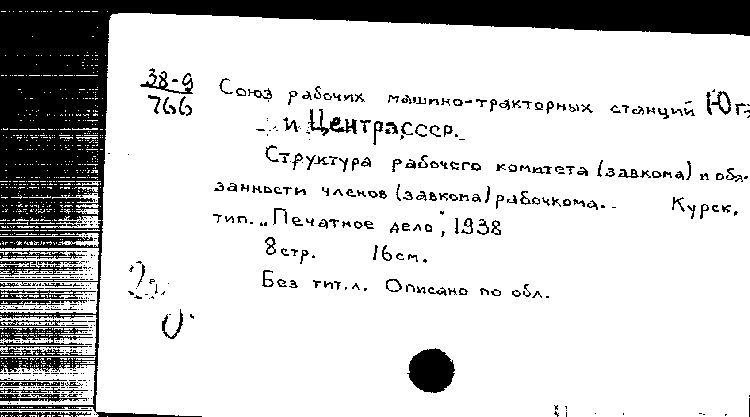 38-9
766
Союз рабочих машино-тракторных станций Юга
и Центра СССР.
Структура рабочего комитета (завкома) и обя-
занности членов (завкома) рабочкома. Курск,
тип. „Печатное дело", 1938
8 стр. 16 см.
Без тит. л. Описано по обл.